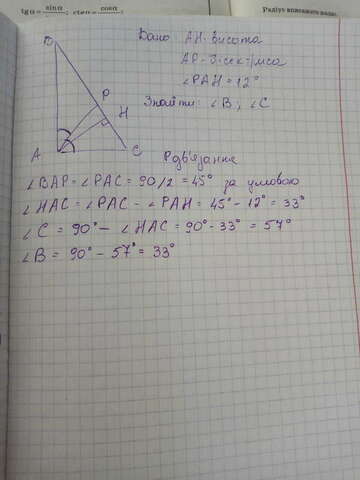 tgα = sinα / cosα; ctgα = cosα / sinα
Радіус вписаного
Дано AH-висота
AP-бісектриса
∠PAH=12°
Знайти: ∠B; ∠C
B
P
H
A
C
Розв'язання
∠BAP=∠PAC=90/2=45° за умовою
∠HAC=∠PAC-∠PAH=45°-12°=33°
∠C=90°-∠HAC=90°-33°=57°
∠B=90°-57°=33°